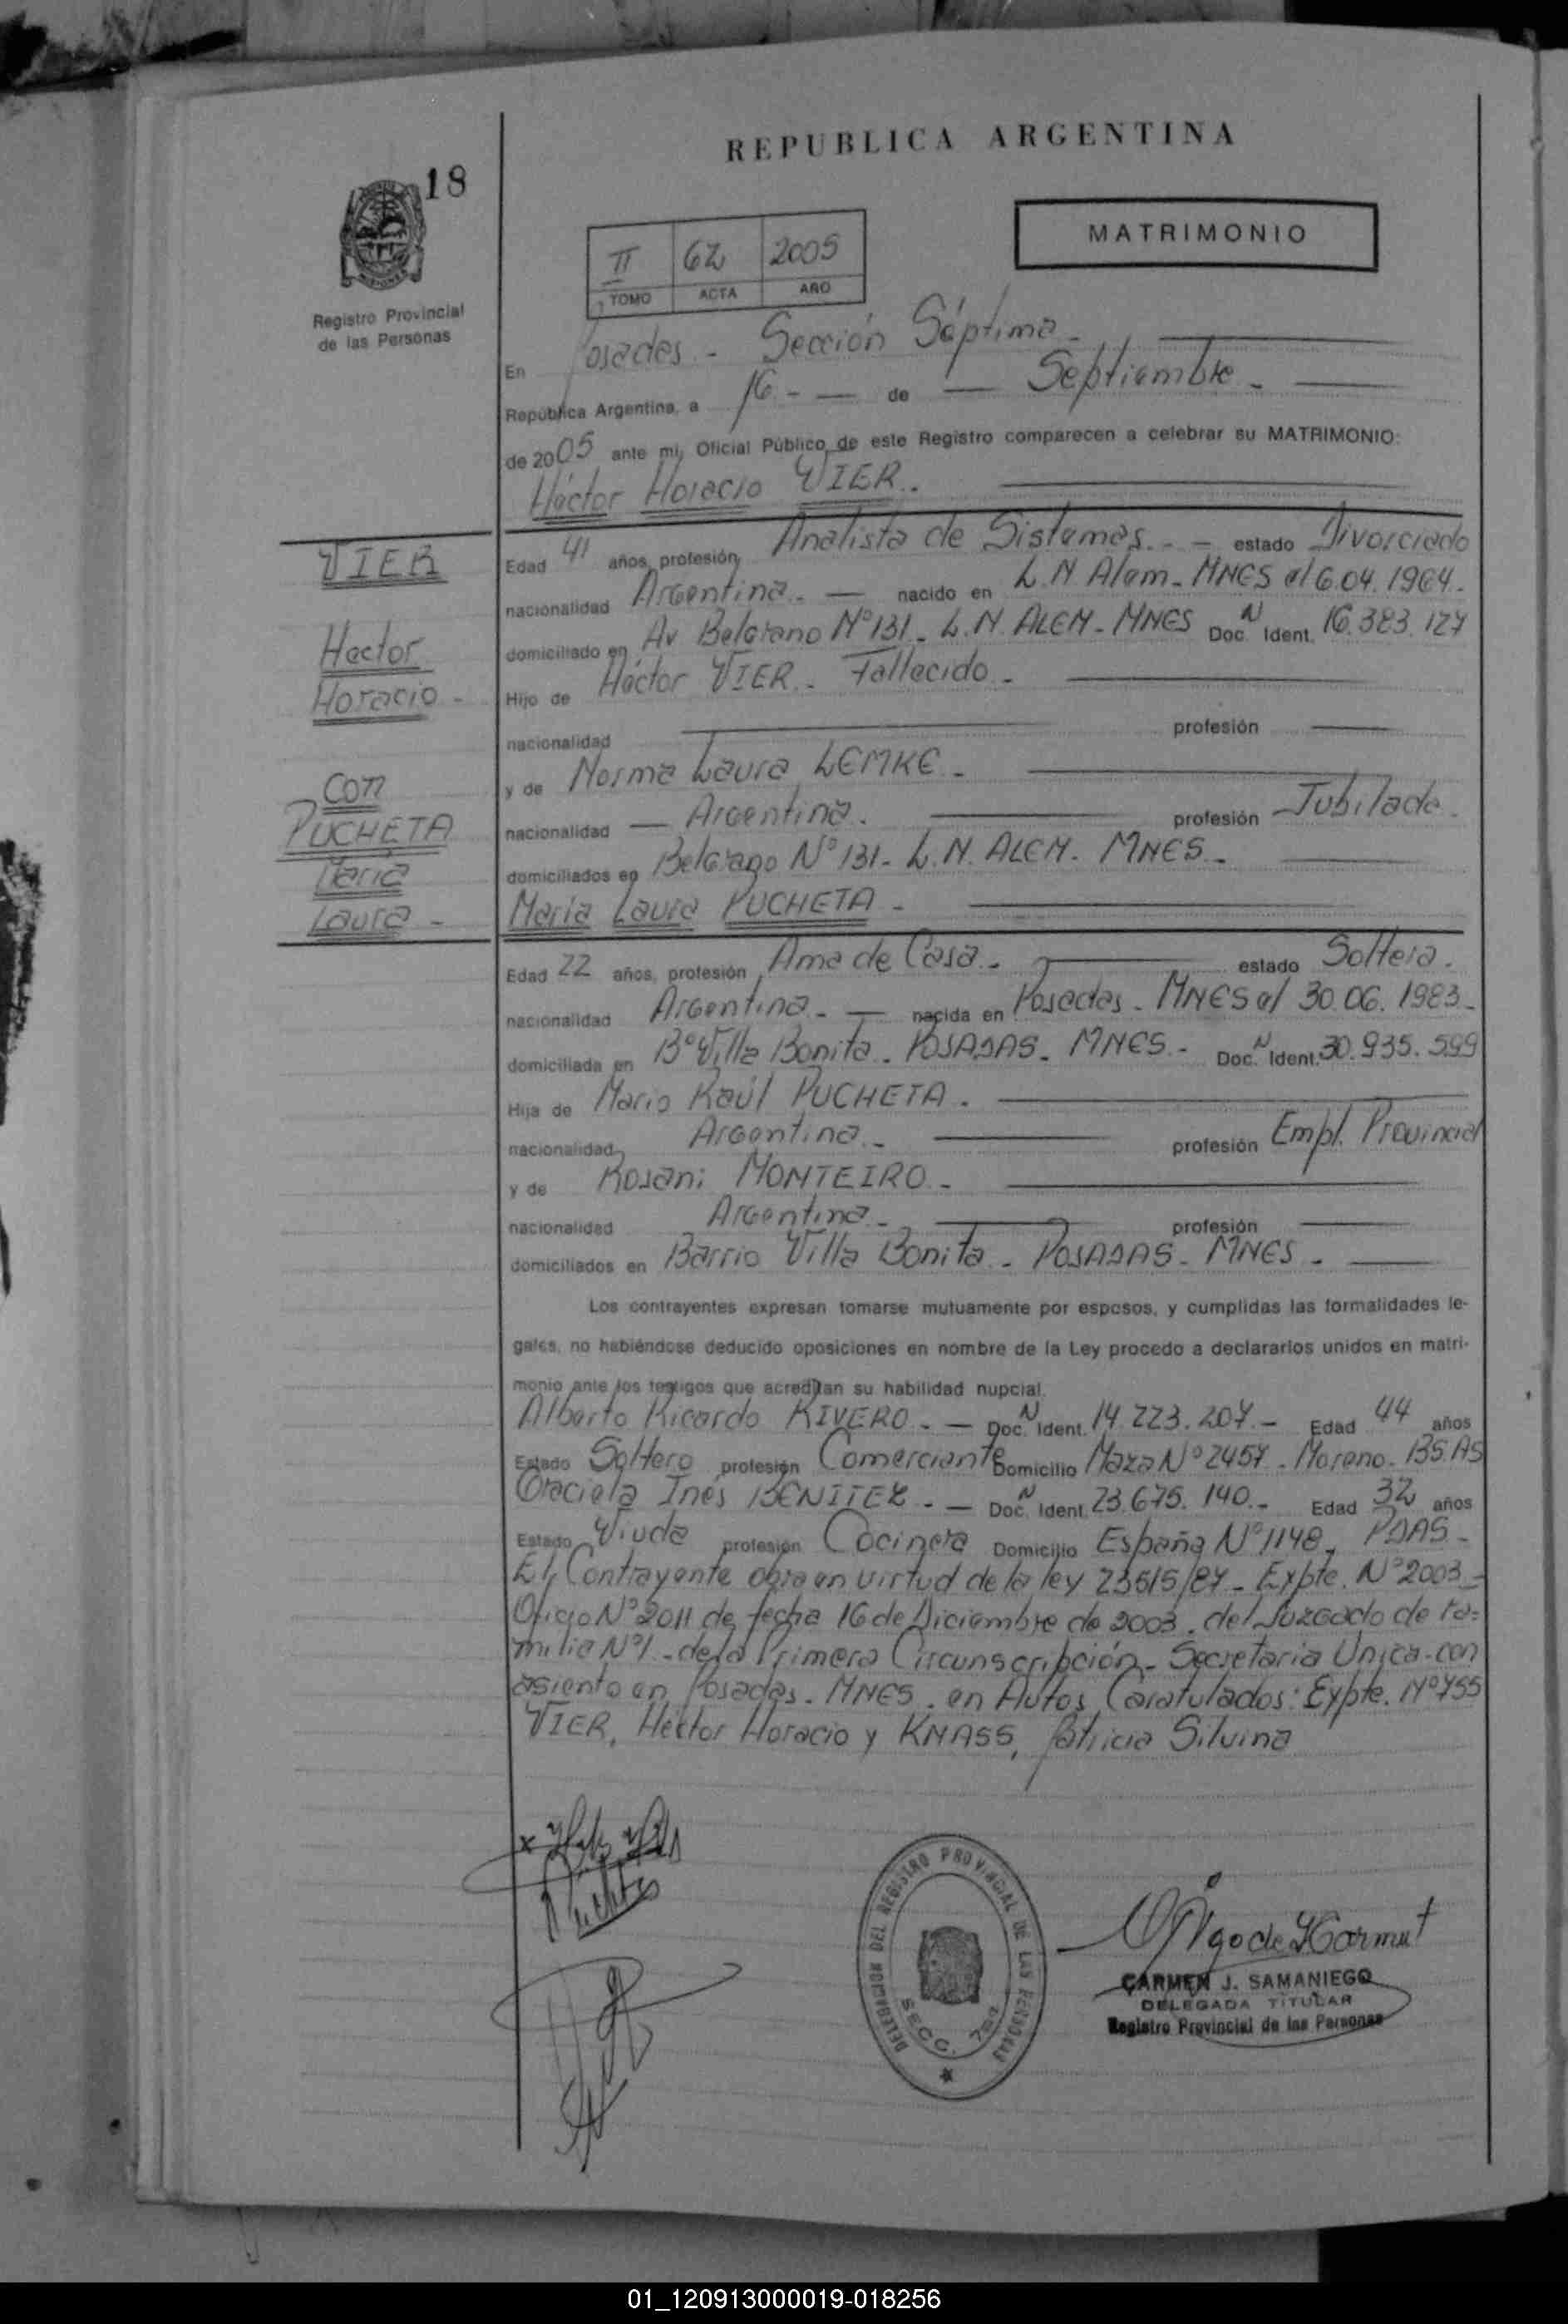 REPUBLICA ARGENTINA
18
MATRIMONIO
II 62 2005
TOMO ACTA AÑO
Registro Provincial
de las Personas
En Posadas - Sección Séptima -
República Argentina, a 16 - — de — Septiembre -
de 2005 ante mi, Oficial Público de este Registro comparecen a celebrar su MATRIMONIO:
Héctor Horacio VIER.
VIER
Hector
Horacio -
con
PUCHETA
María
Laura -
Edad 41 años, profesión Analista de Sistemas. - - estado Divorciado
nacionalidad Argentina. — nacido en L.N. Alem - MNES el 6.04.1964.
domiciliado en Av Belgrano Nº 131 - L.N. ALEM - MNES Doc. N Ident. 16.383.127
Hijo de Héctor VIER - Fallecido -
nacionalidad — profesión —
y de Norma Laura LEMKE -
nacionalidad — Argentina. — profesión Jubilada.
domiciliados en Belgrano Nº 131 - L.N. ALEM - MNES -
María Laura PUCHETA -
Edad 22 años, profesión Ama de Casa - estado Soltera.
nacionalidad Argentina - — nacida en Posadas - MNES el 30.06.1983 -
domiciliada en Bº Villa Bonita - POSADAS - MNES - Doc. N Ident. 30.935.599
Hija de Mario Raúl PUCHETA.
nacionalidad Argentina - — profesión Empl. Provincial
y de Rosani MONTEIRO -
nacionalidad Argentina - — profesión —
domiciliados en Barrio Villa Bonita - POSADAS - MNES - —
Los contrayentes expresan tomarse mutuamente por esposos, y cumplidas las formalidades le-
gales, no habiéndose deducido oposiciones en nombre de la Ley procedo a declararlos unidos en matri-
monio ante los testigos que acreditan su habilidad nupcial.
Alberto Ricardo RIVERO - — Doc. N Ident. 14.223.207 - Edad 44 años
Estado Soltero profesión Comerciante Domicilio Maza Nº 2457 - Moreno - BS.AS
Graciela Inés BENITEZ - — Doc. N Ident. 23.675.140 - Edad 32 años
Estado Viuda profesión Cocinera Domicilio España Nº 1148, PDAS -
El Contrayente obra en virtud de la ley 23515/87 - Expte. Nº 2003 -
Oficio Nº 2011 de fecha 16 de Diciembre de 2003. del Juzgado de Fa=
milia Nº 1 - de la Primera Circunscripción - Secretaria Unica - con
asiento en Posadas - MNES. en Autos Caratulados: Expte. Nº 755
VIER, Héctor Horacio y KNASS, Patricia Silvina
DELEGACION DEL REGISTRO PROVINCIAL DE LAS PERSONAS
SECC. 7ma
CARMEN J. SAMANIEGO
DELEGADA TITULAR
Registro Provincial de las Personas
01_120913000019-018256